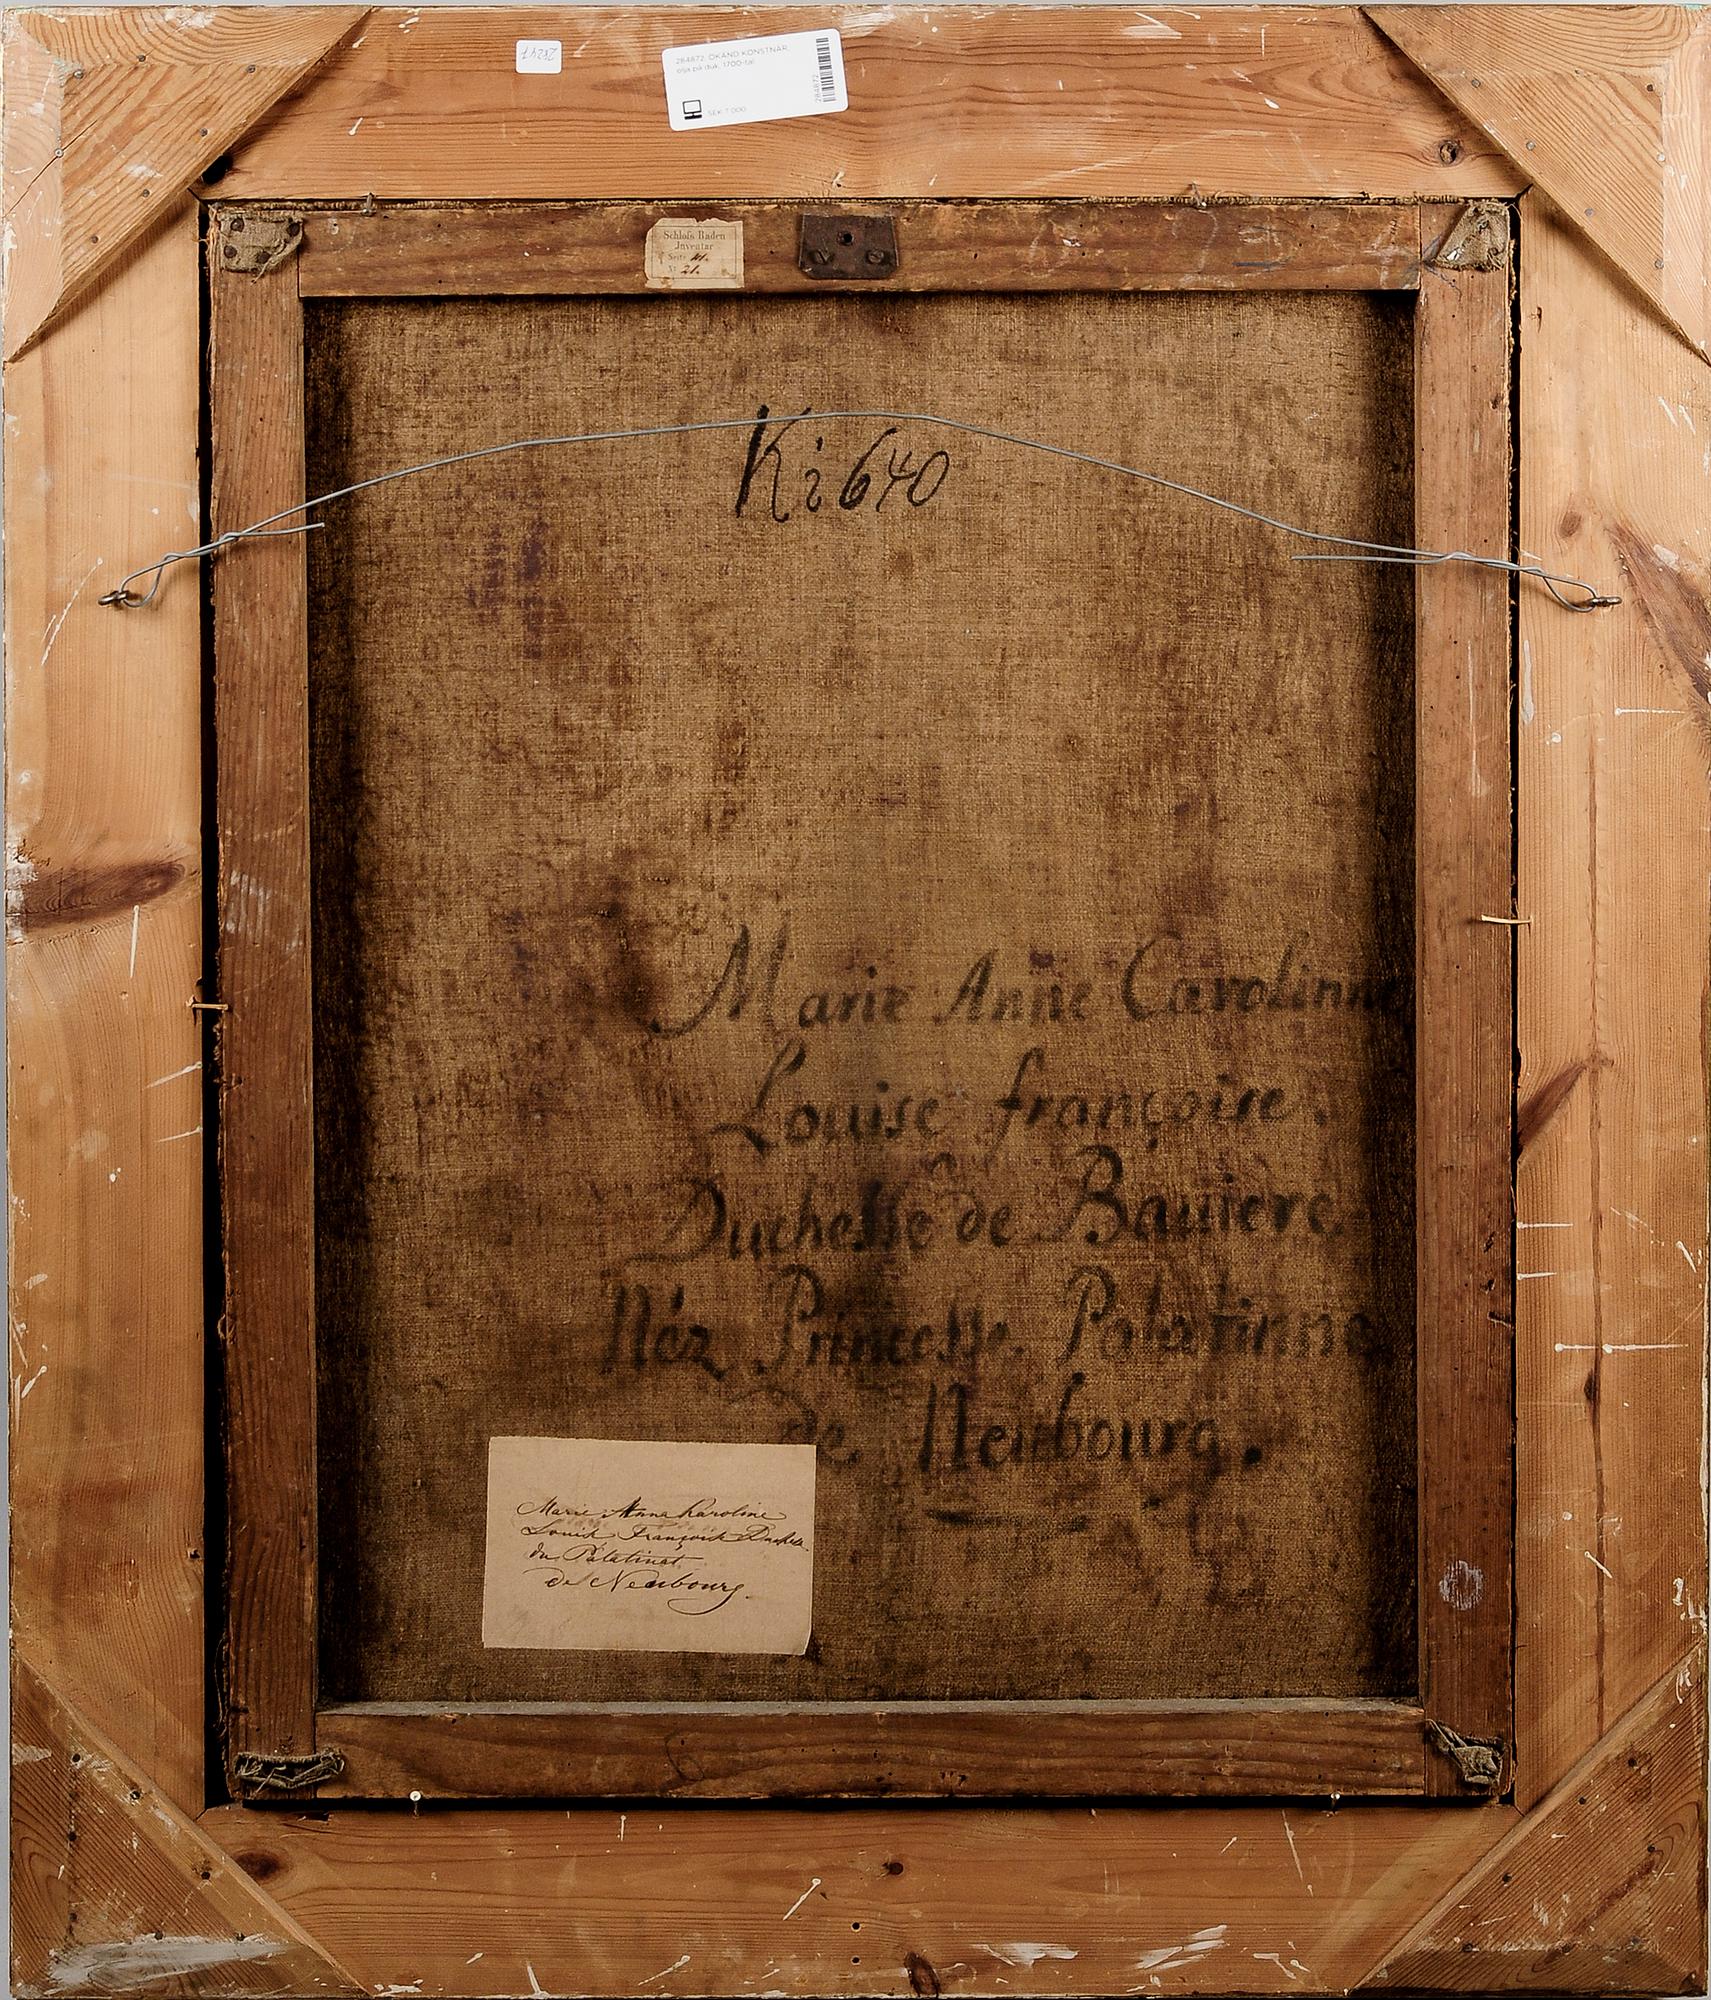 28247
284872. OKÄND KONSTNÄR,
olja på duk, 1700-tal.
SEK 7 000
284872
Schloſs Baden
Inventar
Seite 41.
Nº 21.
Ki 640
Marie Anne Carolinne
Louise françoise.
Duchesse de Bauiere.
Néz Princesse. Palatinne
de Neubourg.
Marie Anna Karoline
Louise Françoise Duchesse
du Palatinat
de Neubourg.
6